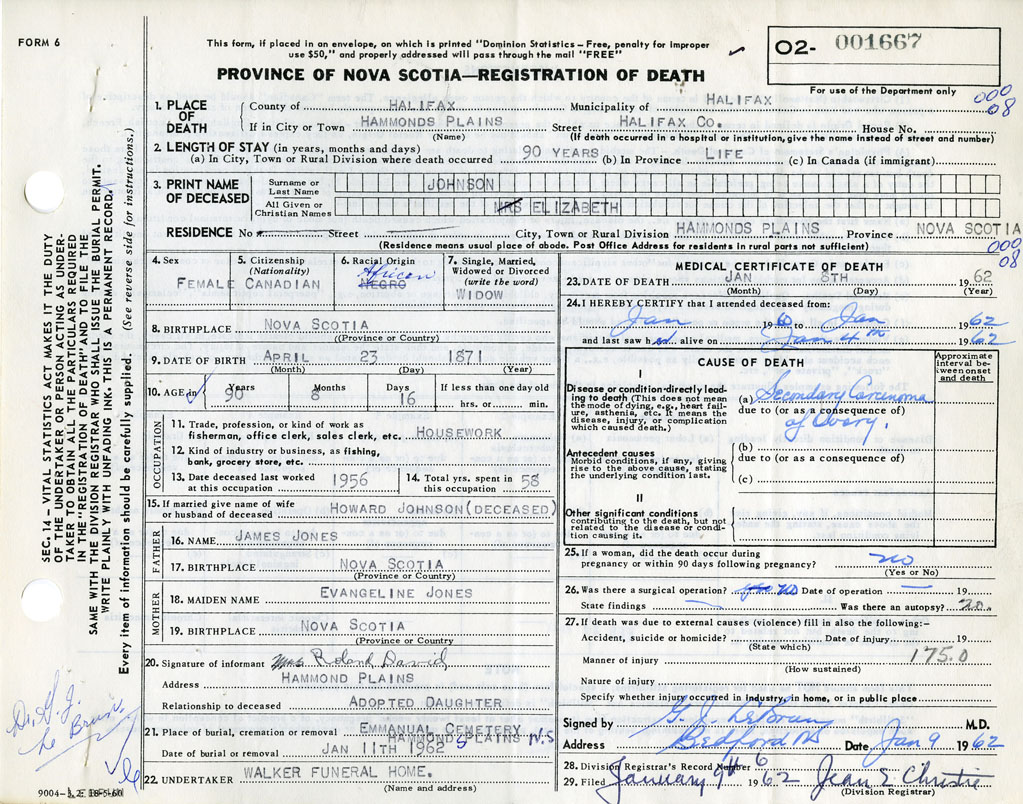 FORM 6
This form, if placed in an envelope, on which is printed "Dominion Statistics – Free, penalty for improper
use $50," and properly addressed will pass through the mail "FREE"
02- 001667
PROVINCE OF NOVA SCOTIA—REGISTRATION OF DEATH
For use of the Department only
000
08
1. PLACE OF DEATH
County of HALIFAX Municipality of HALIFAX
If in City or Town HAMMONDS PLAINS Street HALIFAX CO. House No.
(Name) (If death occurred in a hospital or institution, give the name instead of street and number)
2. LENGTH OF STAY (in years, months and days)
(a) In City, Town or Rural Division where death occurred 90 YEARS (b) In Province LIFE (c) In Canada (if immigrant)
3. PRINT NAME OF DECEASED
Surname or Last Name JOHNSON
All Given or Christian Names MRS ELIZABETH
RESIDENCE No Street City, Town or Rural Division HAMMONDS PLAINS Province NOVA SCOTIA
(Residence means usual place of abode. Post Office Address for residents in rural parts not sufficient)
000
08
4. Sex
FEMALE
5. Citizenship
(Nationality)
CANADIAN
6. Racial Origin
African
NEGRO
7. Single, Married,
Widowed or Divorced
(write the word)
WIDOW
8. BIRTHPLACE NOVA SCOTIA
(Province or Country)
9. DATE OF BIRTH APRIL 23 1871
(Month) (Day) (Year)
10. AGE in Years 90 Months 8 Days 16 If less than one day old
hrs. or min.
OCCUPATION
11. Trade, profession, or kind of work as
fisherman, office clerk, sales clerk, etc. HOUSEWORK
12. Kind of industry or business, as fishing,
bank, grocery store, etc.
13. Date deceased last worked
at this occupation 1956
14. Total yrs. spent in
this occupation 58
15. If married give name of wife
or husband of deceased HOWARD JOHNSON (DECEASED)
FATHER
16. NAME JAMES JONES
17. BIRTHPLACE NOVA SCOTIA
(Province or Country)
MOTHER
18. MAIDEN NAME EVANGELINE JONES
19. BIRTHPLACE NOVA SCOTIA
(Province or Country)
20. Signature of informant Mrs Roland David
Address HAMMOND PLAINS
Relationship to deceased ADOPTED DAUGHTER
21. Place of burial, cremation or removal EMMANUAL CEMETERY
HAMMOND PLAINS N.S
Date of burial or removal JAN 11TH 1962
22. UNDERTAKER WALKER FUNERAL HOME.
(Name and address)
MEDICAL CERTIFICATE OF DEATH
23. DATE OF DEATH JAN 8TH 1962
(Month) (Day) (Year)
24. I HEREBY CERTIFY that I attended deceased from:
Jan 1960 to Jan 1962
and last saw her alive on Jan 4th 1962
CAUSE OF DEATH
Approximate
interval be-
tween onset
and death
I
Disease or condition directly lead-
ing to death (This does not mean
the mode of dying, e.g., heart fail-
ure, asthenia, etc. It means the
disease, injury, or complication
which caused death.)
(a) Secondary Carcinoma
due to (or as a consequence of)
of Ovary.
Antecedent causes
Morbid conditions, if any, giving
rise to the above cause, stating
the underlying condition last.
(b)
due to (or as a consequence of)
(c)
II
Other significant conditions
contributing to the death, but not
related to the disease or condi-
tion causing it.
25. If a woman, did the death occur during
pregnancy or within 90 days following pregnancy? no
(Yes or No)
26. Was there a surgical operation? no Date of operation 19
State findings Was there an autopsy? no.
27. If death was due to external causes (violence) fill in also the following:–
Accident, suicide or homicide? Date of injury 19
(State which)
175.0
Manner of injury
(How sustained)
Nature of injury
Specify whether injury occurred in industry, in home, or in public place
Signed by G. J. LeBrun M.D.
Address Bedford NS Date Jan 9 1962
28. Division Registrar's Record Number 6
29. Filed January 9th 1962 Jean E Christie
(Division Registrar)
SEC. 14 – VITAL STATISTICS ACT MAKES IT THE DUTY
OF THE UNDERTAKER OR PERSON ACTING AS UNDER-
TAKER TO OBTAIN ALL THE PARTICULARS REQUIRED
IN THE "REGISTRATION OF DEATH" AND TO FILE THE
SAME WITH THE DIVISION REGISTRAR WHO SHALL ISSUE THE BURIAL PERMIT.
WRITE PLAINLY WITH UNFADING INK. THIS IS A PERMANENT RECORD.
Every item of information should be carefully supplied. (See reverse side for instructions.)
Dr. G. J.
Le Brun.